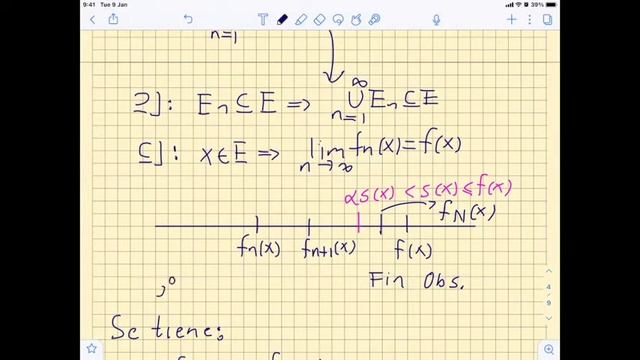 9:41 Tue 9 Jan 39%
n=1
⊇]: En ⊆ E => ∞∪n=1 En ⊆ E
⊆]: x ∈ E => lim n→∞ fn(x) = f(x)
αs(x) < s(x) ≤ f(x)
fN(x)
fn(x) fn+1(x) f(x)
Fin Obs.
Se tiene:
4
9